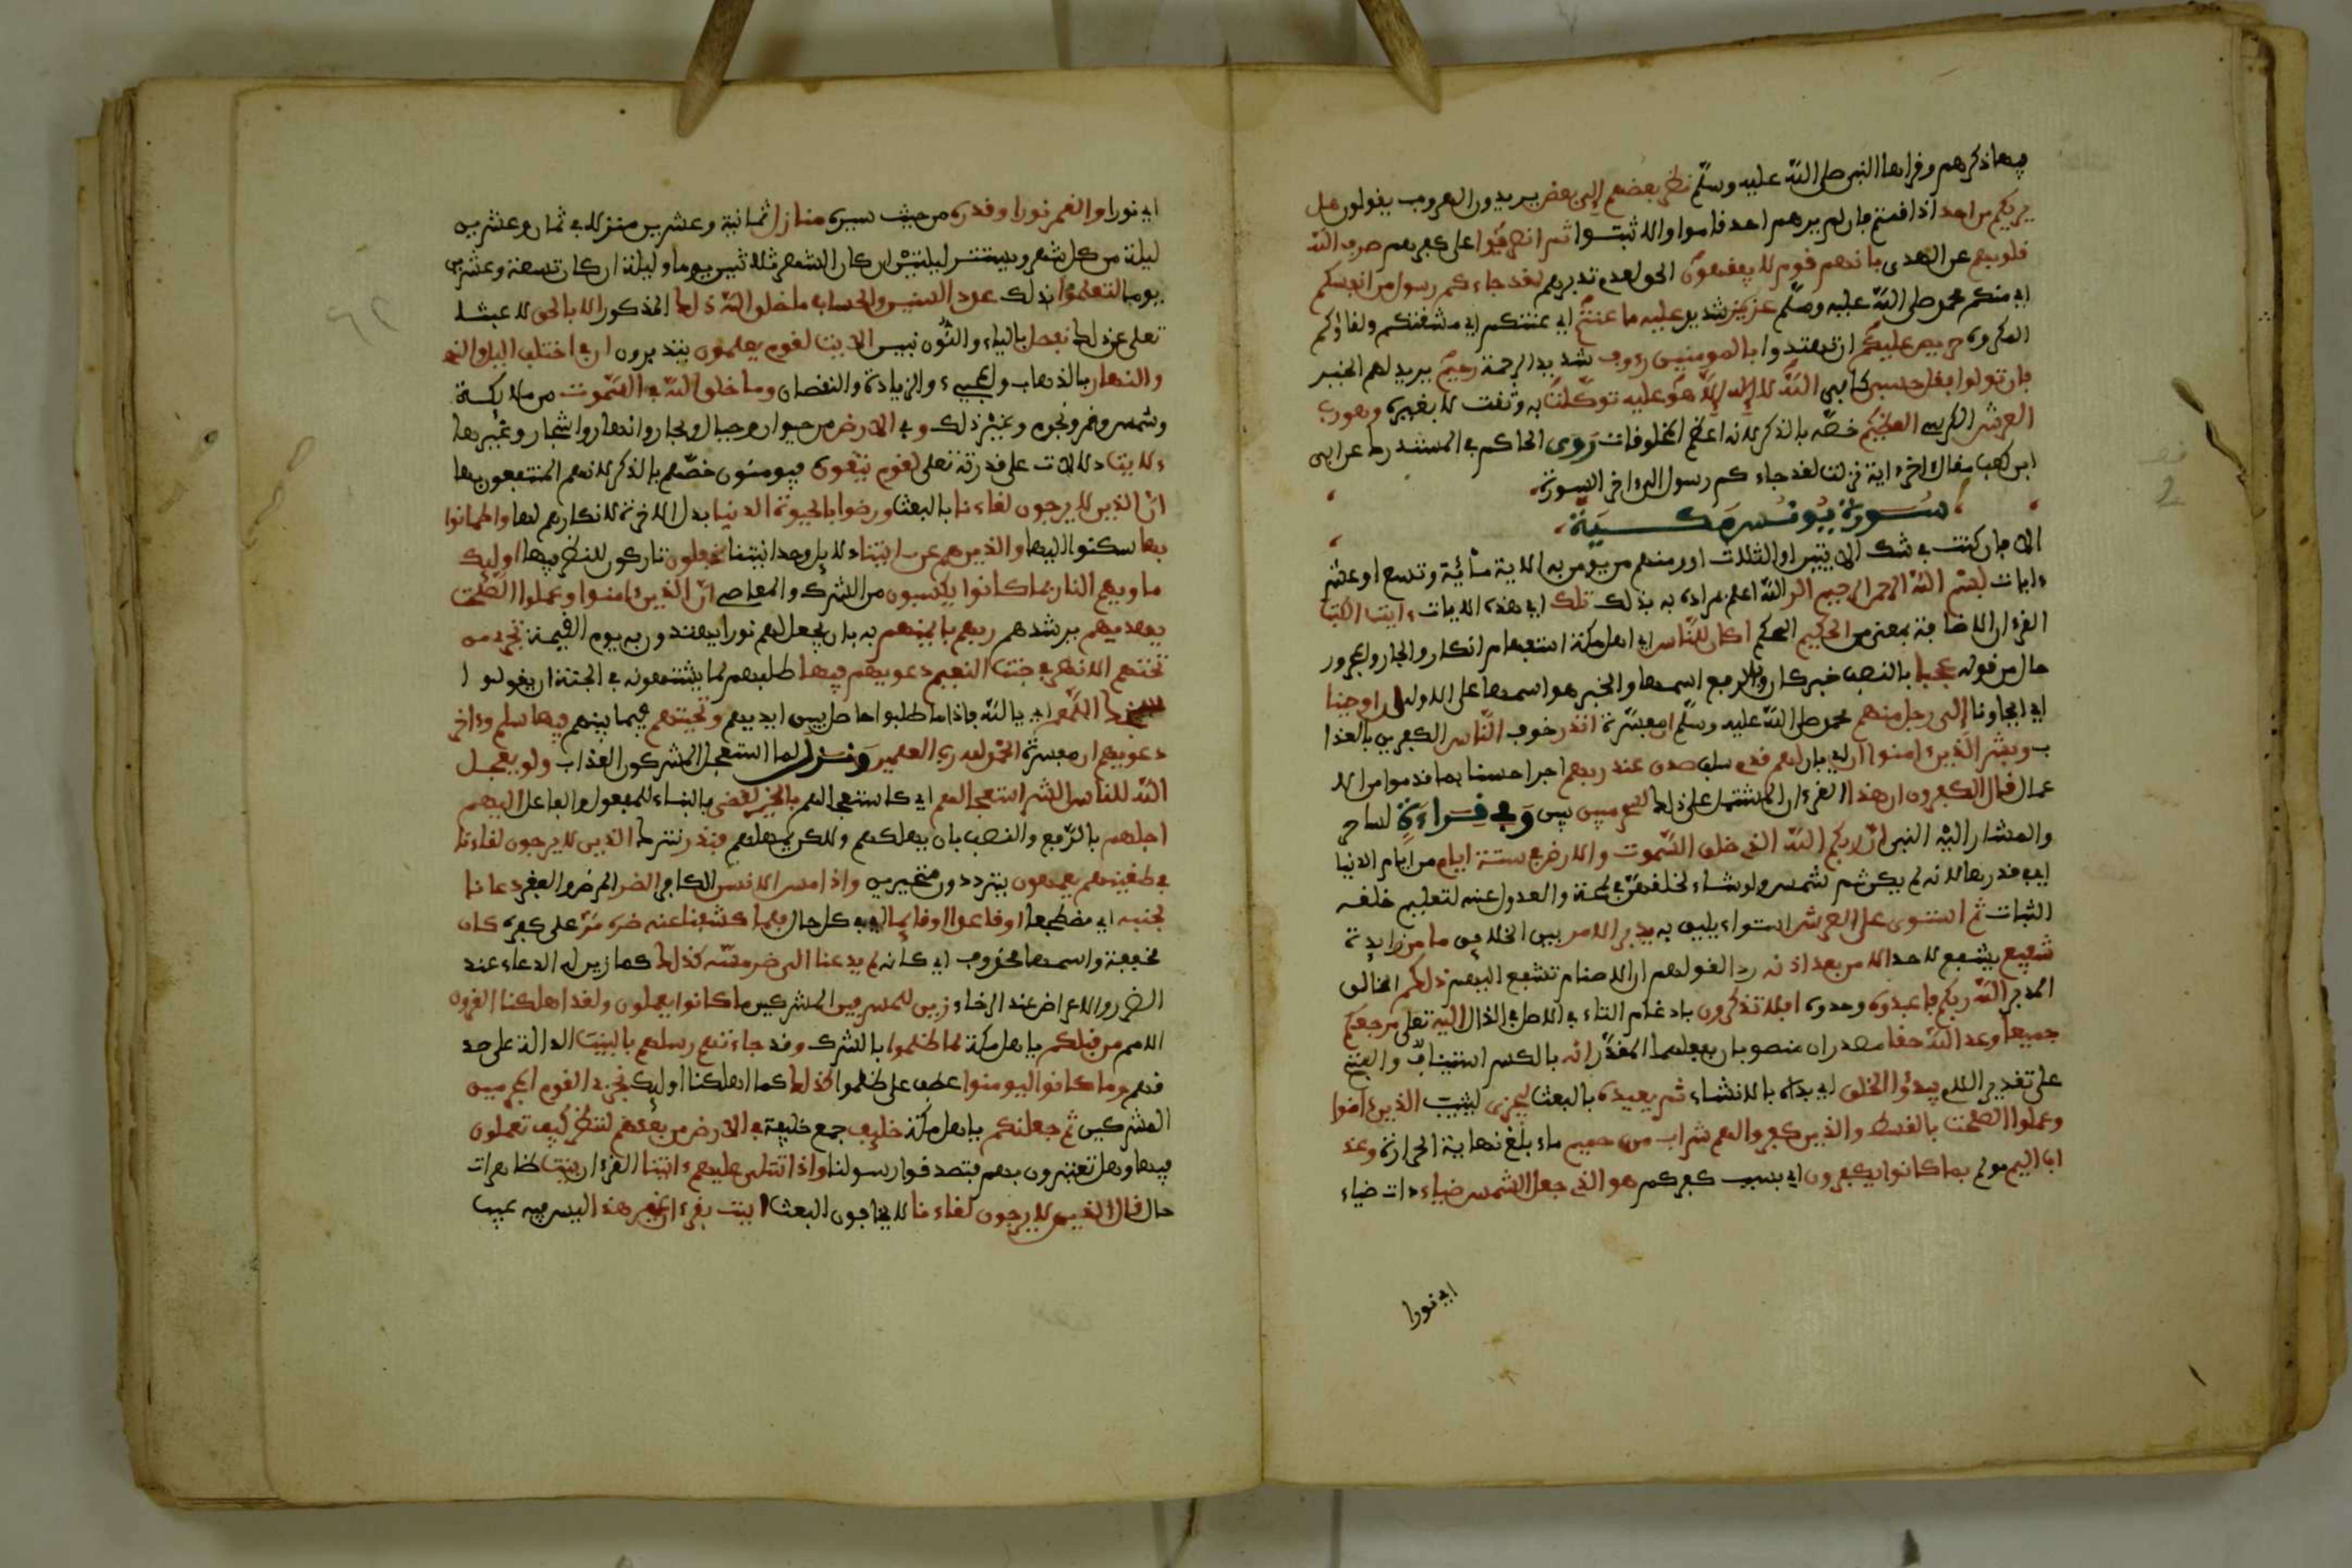 فيها ذكرهم وقراها النبي صلى الله عليه وسلم نظر بعضهم إلى بعض يريدون الهروب يقولون هل
يريكم من احد اذا قمتم فان لم يرهم احد قاموا والا ثبتوا ثم انصرفوا على كفرهم صرف الله
قلوبهم عن الهدى بانهم قوم لا يفقهون الحق لعدم تدبرهم لقد جاءكم رسول من انفسكم
اي منكم محمد صلى الله عليه وسلم عزيز شديد عليه ما عنتم اي عنتكم اي مشقتكم ولقاؤكم
المكروه حريص عليكم ان تهتدوا بالمومنين رءوف شديد الرحمة رحيم يريد لهم الخير
فان تولوا فقل حسبي كافي الله لا إله إلا هو عليه توكلت به وثقت لا بغيره وهو رب
العرش الكرسي العظيم خصه بالذكر لانه اعظم المخلوقات روى الحاكم في المستدرك عن ابي
ابن كعب قال اخر ءاية نزلت لقد جاءكم رسول الى ءاخر السورة
سورة يونس مكية
الا فان كنت في شك الايتين او الثلاث او ومنهم من يومن به الاية مائة وتسع او عشر
ءايات بسم الله الرحمن الرحيم الر الله اعلم بمراده به بذلك تلك اي هذه الايات ءايت الكتب
القرءان الاضافة بمعنى من الحكيم المحكم اكان للناس اي اهل مكة استفهام انكار والجار والمجرور
حال من قوله عجبا بالنصب خبر كان وبالرفع اسمها والخبر هو اسمها على الاولى ان اوحينا
اي ايحاونا إلى رجل منهم محمد صلى الله عليه وسلم ان مفسرة انذر خوف الناس الكفرين بالعذا
ب وبشر الذين ءامنوا ان اي بان لهم قدم سلف صدق عند ربهم اجرا حسنا بما قدموا من الا
عمال قال الكفرون ان هذا القرءان المشتمل على ذلك لسحر مبين بين وفي قراءة لساحر
والمشار اليه النبي ان ربكم الله الذي خلق السموت والارض في ستة ايام من ايام الدنيا
اي في قدرها لانه لم يكن ثم شمس ولو شاء لخلقهن في لمحة والعدول عنه لتعليم خلقه
الثبات ثم استوى على العرش استواء يليق به يدبر الامر بين الخلائق ما من زايدة
شفيع يشفع لاحد الا من بعد اذنه رد لقولهم ان الاصنام تشفع لهم ذلكم الخالق
المدبر الله ربكم فاعبدوه وحدوه افلا تذكرون بادغام التاء في الاصل في الذال اليه تعلى مرجعكم
جميعا وعد الله حقا مصدران منصوبان بفعلهما المقدر إنه بالكسر استينافا والفتح
على تقدير اللام يبدؤا الخلق اي بداه بالانشاء ثم يعيده بالبعث ليجزي ليثيب الذين ءامنوا
وعملوا الصلحت بالقسط والذين كفروا لهم شراب من حميم ماء بلغ نهاية الحرارة وعذ
اب اليم مولم بما كانوا يكفرون اي بسبب كفرهم هو الذي جعل الشمس ضياء ذات ضياء
اي نورا
اي نورا والقمر نورا وقدره من حيث سيره منازل ثمانية وعشرين منزلا في ثمان وعشرين
ليلة من كل شهر ويستتر ليلتين ان كان الشهر ثلاثين يوما وليلة ان كان تسعة وعشرين
يوما لتعلموا بذلك عدد السنين والحساب ما خلق الله ذلك المذكور الا بالحق لا عبثا
تعلى عن ذلك نفصل بالياء والنون نبين الايت لقوم يعلمون يتدبرون ان في اختلف اليل والنه
والنهار بالذهاب والمجيىء والزيادة والنقصان وما خلق الله في السموت من ملائكة
وشمس وقمر ونجوم وغير ذلك وفي الارض من حيوان وجبال وبحار وانهار واشجار وغيرها
ءلايت دلالات على قدرته تعلى لقوم يتقون فيومنون خصهم بالذكر لانهم المنتفعون بها
ان الذين لا يرجون لقاءنا بالبعث ورضوا بالحيوة الدنيا بدل الاخرة لانكارهم لها واطمانوا
بها سكنوا اليها والذين هم عن ءايتنا دلايل وحدانيتنا غفلون تاركون للنظر فيها اوليك
ماويهم النار بما كانوا يكسبون من الشرك والمعاصي ان الذين ءامنوا وعملوا الصلحت
يهديهم يرشدهم ربهم بايمنهم به بان يجعل لهم نورا يهتدون به يوم القيمة تجري من
تحتهم الانهر في جنت النعيم دعويهم فيها طلبهم لما يشتهونه في الجنة ان يقولوا
سبحنك اللهم اي يالله فاذا ما طلبوا حاصل بين ايديهم وتحيتهم فيما بينهم فيها سلم وءاخر
دعويهم ان مفسرة الحمد لله رب العلمين ونزل لما استعجل المشركون العذاب ولو يعجل
الله للناس الشر استعجالهم اي كاستعجالهم بالخير لقضي بالبناء للمفعول والفاعل اليهم
اجلهم بالرفع والنصب بان يهلكهم ولكن يمهلهم فنذر نترك الذين لا يرجون لقاءنا
في طغينهم يعمهون يترددون متحيرين واذا مس الانسن الكافر الضر المرض والفقر دعانا
لجنبه اي مضطجعا او قاعدا او قايما اي في كل حال فلما كشفنا عنه ضره مر على كفره كان
مخففة واسمها محذوف اي كانه لم يدعنا الى ضر مسه كذلك كما زين له الدعاء عند
الضر والاعراض عند الرخاء زين للمسرفين المشركين ما كانوا يعملون ولقد اهلكنا القرون
الامم من قبلكم ياهل مكة لما ظلموا بالشرك وقد جاءتهم رسلهم بالبينت الدالة على صد
قهم وما كانوا ليومنوا عطف على ظلموا كذلك كما اهلكنا اوليك نجزي القوم المجرمين
المشركين ثم جعلنكم ياهل مكة خليف جمع خليفة في الارض من بعدهم لننظر كيف تعملون
فيها وهل تعتبرون بهم فتصدقوا رسولنا واذا تتلى عليهم ءايتنا القرءان بينت ظاهرات
حال قال الذين لا يرجون لقاءنا لا يخافون البعث ايت بقرءان غير هذا ليس فيه عيب